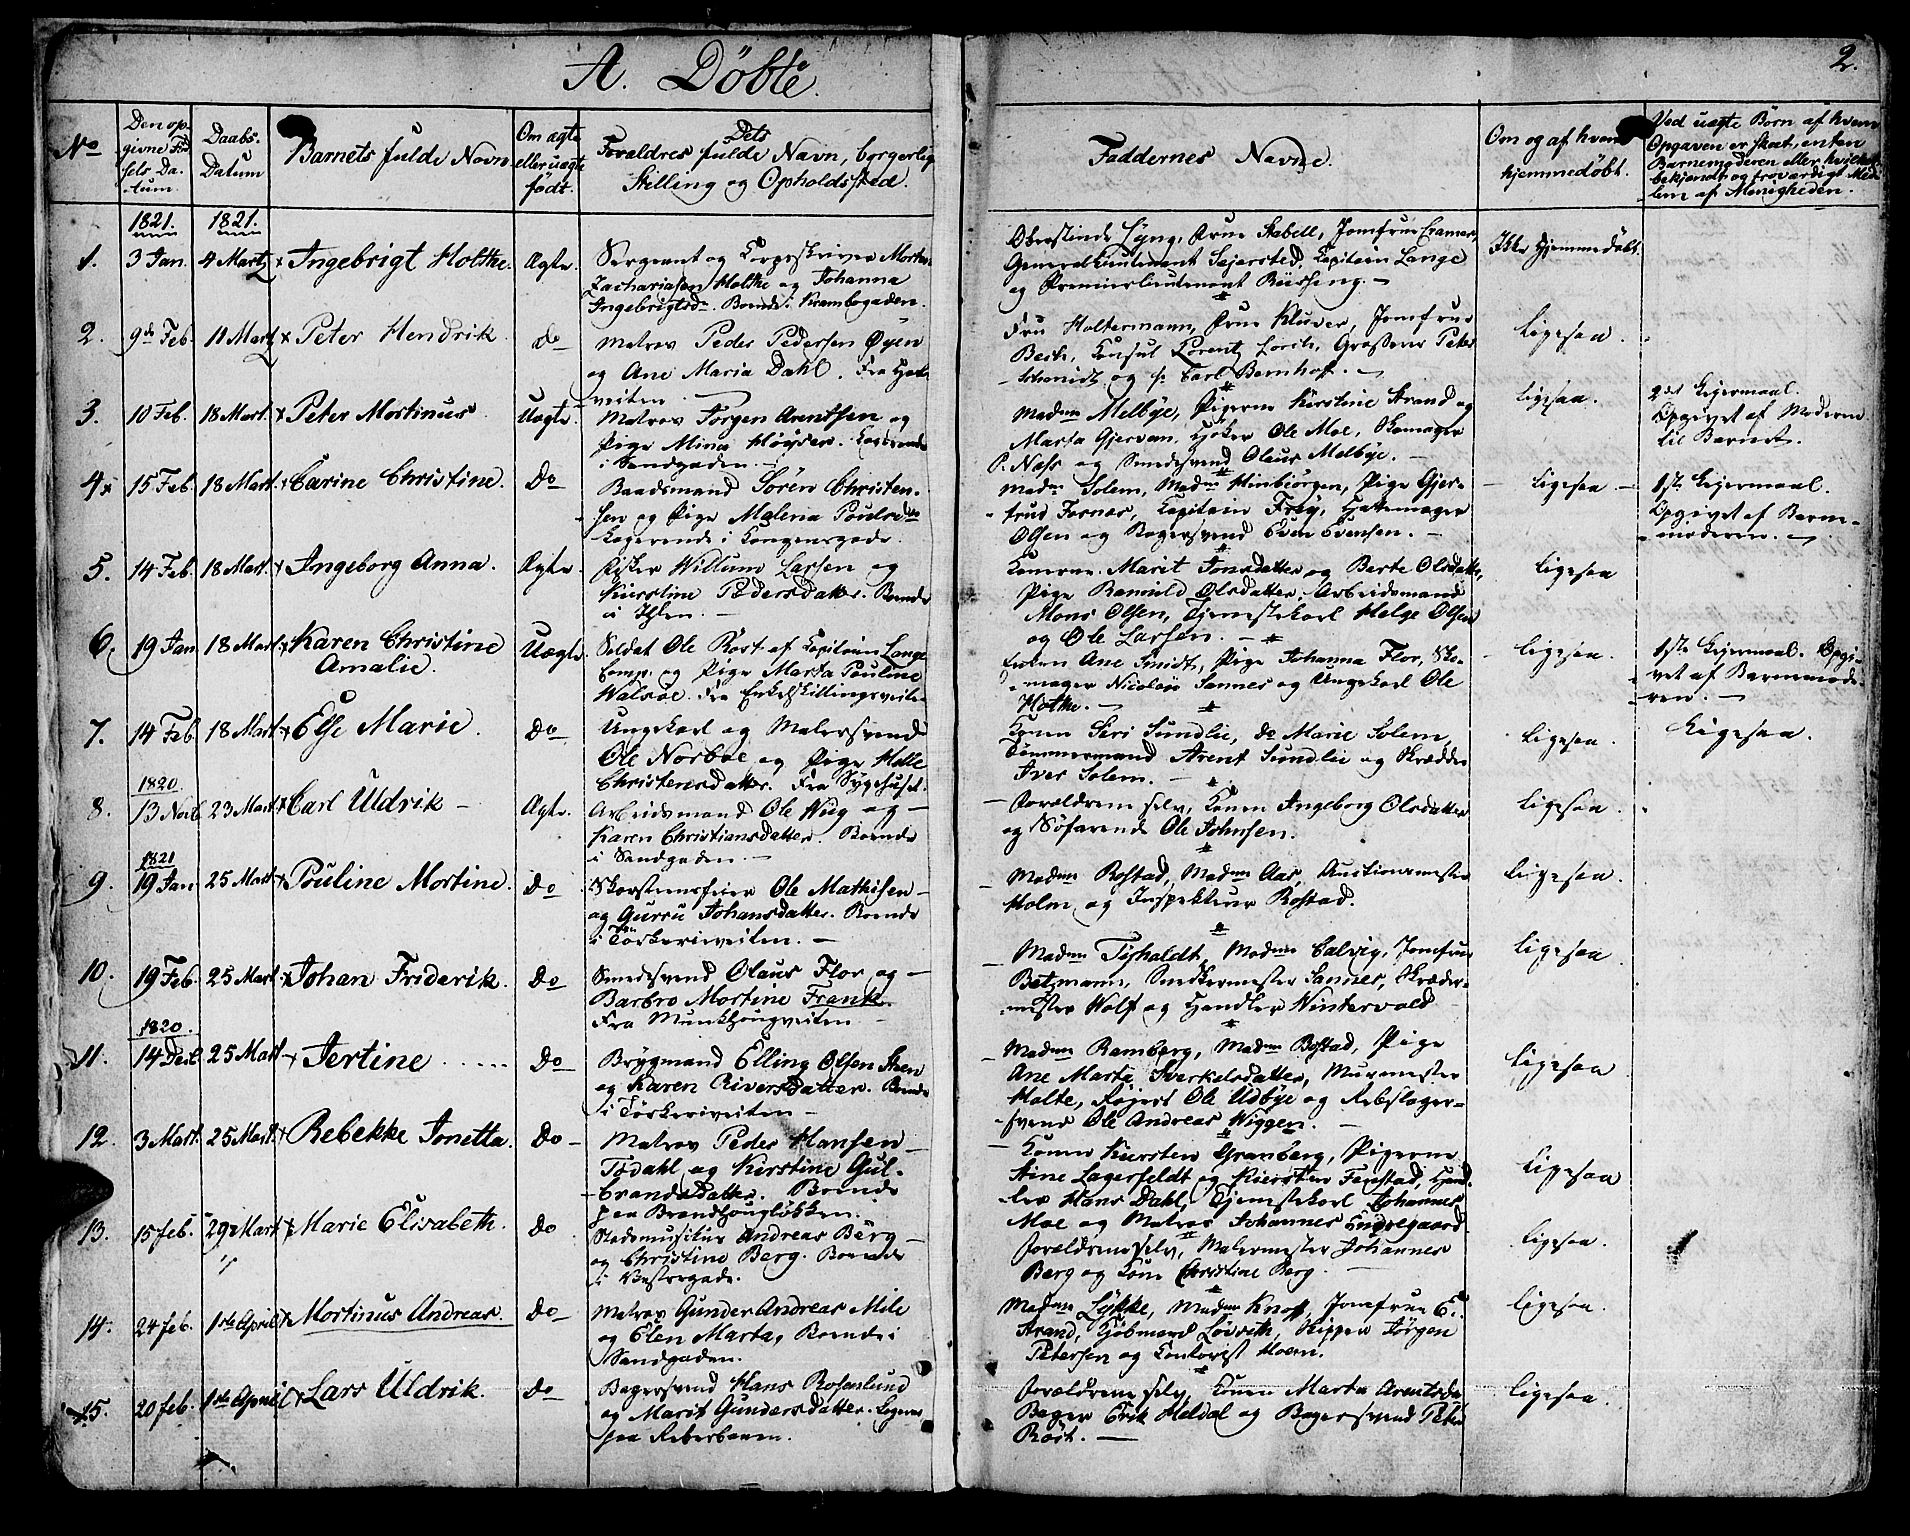 2.
A. Döbte.
No
Den op-
givne Föd
sels Da-
tum.
Daabs-
Datum
Barnets fulde Navn
Om ægte
eller uægte
födt.
Dets
Forældres fulde Navn, borgerlig
Stilling og Opholdssted.
Faddernes Navne.
Om og af hvem
hjemmedöbt.
Ved uægte Børn af hvem
Opgaven er skeet, enten
Barnemoderen eller hvilket
bekjendt og troværdigt Med-
lem af Menigheden.
1821. 1821.
1. 3 Jan. 4 Martz Ingebrigt Holthe. Ægte.
Sergeant og Corpsskriver Morten
Zachariasen Holthe og Johanna
Ingebrigtsdr. Boende i Krambogaden.
Oberstinde Lyng, Frue Stabell, Jomfrue Cramer,
General Lieutenant Sejersted, Capitain Lange
og Premierlieutenant Büssing.
Ikke Hjemme Döbt.
2. 9de Feb. 11 Mart Peter Hendrik. do
Matros Peder Pedersen Öyen
og Ane Maria Dahl. Fra
veiten
Fru Holtermann, Frue Kluver, Jomfrue
Bech, Konsul Lorentz Lorch, Grosserer Peter
Schmidt og Hr. Carl Bernhoft.
Ligesaa.
3. 10 Feb. 18 Mart. Peter Mortinus. Uægte.
Matros Jörgen Arentsen og
Pige Mina Höyder. Logerende
i Sandgaden.
Madm Melbye, Pigerne Kirstine Strand og
Marta Gjervan, Höker Ole Moe, Skomager
P. Næss og Smedesvend Olaus Melbye.
Ligesaa.
2det Leiermaal.
Opgivet af Moderen
til Barnet.
4. 15 Feb. 18 Mart. Carine Christine. Do
Baadsmand Sören Christen-
sen og Pige Malena Poulsdr
Logerende i Kongensgade.
Madm Solem, Madm Hinbiörgen, Pige Gjer-
trud Fornæs, Capitain Fröy, Hattemager
Olsen og Bagersvend Even Evensen.
Ligesaa
1ste Leiermaal.
Opgivet af Barne-
moderen.
5. 14 Feb. 18 Mart. Ingeborg Anna. Ægte.
Fisker Willum Larsen og
Kierstine Pedersdatter. Boende
i Ihlen.
Konerne Marit Jonsdatter og Berte Olsdatter,
Pige Ranuld Olsdatter, Arbeidsmand
Mons Olsen, Tjenestekarl Helge Olsen
og Ole Larsen.
Ligesaa
6. 19 Jan. 18 Mart. Karen Christine
Amalie.
Uægte.
Soldat Ole Röst af Capitain Lange
Comp. og Pige Marta Pouline
Walsöe. Fra Enkeltskillingsveite
Enken Ane Smidt, Pige Johanna Flor, Sko-
mager Nicolay Sannes og Ungekarl Ole
Holthe.
Ligesaa.
1ste Leiermaal. Opgi-
vet af Barnemode-
ren.
7. 14 Feb. 18 Mart. Else Marie. Do
Ungekarl og Malersvend
Ole Norböe og Pige Helle
Christensdatter. Fra Sygehuset.
Konen Siri Sundlie, Do Marie Solem,
Tömmermand Arent Sundlie og Skrædder
Iver Solem.
Ligesaa.
Ligesaa.
1820
8. 13 Novb. 23 Mart. Carl Uldrik Ægte.
Arbeidsmand Ole Wug og
Karen Christiansdatter. Boende
i Sandgaden.
Forældrene selv, Konen Ingeborg Olsdatter
og Söfarende Ole Johnsen.
Ligesaa.
1821
9. 19 Jan. 25 Mart Pouline Mortine. Do
Skorsteensfeier Ole Mathisen
og Gurru Johansdatter. Boende
i Törkeriveiten.
Madm Rostad, Madm Aas, Auctionsmester
Holm og Inspekteur Rostad.
Ligesaa.
10. 19 Feb. 25 Mart Johan Friderik. Do
Smedesvend Olaus Flor og
Barbro Mortine Frank.
Fra Munkhougveiten
Madm Tyholdt, Madm Calvig, Jomfrue
Betzmann, Snedkermester Sannes, Skræder-
mester Wolf og Handler Wintervold
Ligesaa.
1820.
11. 14 Decb. 25 Mart Jertine Do
Brygmand Elling Olsen Steen
og Karen Siversdatter. Boende
i Törkeriveiten
Madm Ramberg, Madm Rostad, Pige
Ane Marta Sverkelsdatter, Murmester
Holte, Fajert Ole Udbye og Rebslager-
svend Ole Andreas Wiggen.
Ligesaa
12. 3 Mart. 25 Mart. Rebekke Jonetta. Do
Matros Peder Hansen
Tödahl og Kierstine Gul-
brandsdatter. Boende
paa Brandhouglökken.
Konen Kiersten Granberg, Pigerne
Stine Lagerfeldt og Kiersten Fenstad, Hand-
ler Hans Dahl, Tjenestekarl Johannes
Moe og Matros Johannes Engelsgaard
Ligesaa
13. 15 feb. 29 Mart Marie Elisabeth. Do
Stadsmusikus Andreas Berg
og Christine Berg. Boende
i Vestregade.
Forældrene selv, Malermester Johannes
Berg og Kone Christine Berg.
Ligesaa.
14. 24 feb. 1ste April Mortinus Andreas. Do
Matros Gunder Andreas Mile
og Elen Marta, Boende i
Sandgaden.
Madm Lykke, Madm Knoff, Jomfrue E.
Strand, Kjöbmand Lövseth, Skipper Jörgen
Petersen og Contorist Hoem.
Ligesaa.
15. 20 feb. 1ste April Lars Uldrik. Do
Bagersvend Hans Rosenlund
og Marit Gundersdatter. Logerer
paa Reberbanen.
Forældrene selv, Konen Marta Arentsdr,
Bager Erik Heldal og Bagersvend Peter
Röst.
Ligesaa.